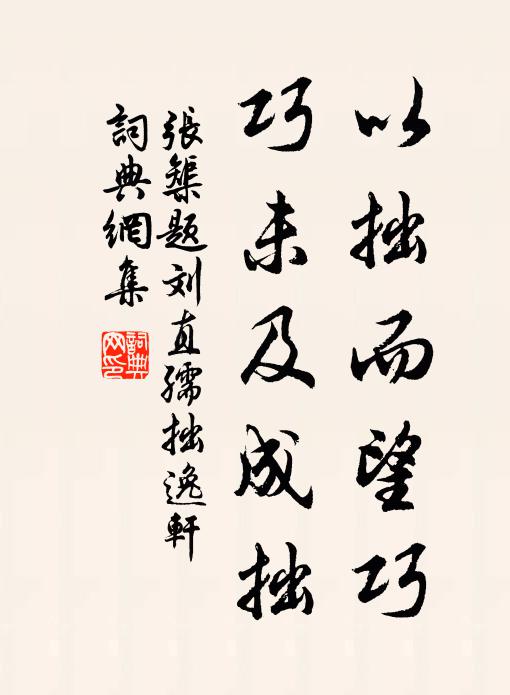 以拙而望巧
巧未及成拙
張榘题刘直孺拙逸軒
詞典網集
詞典網印